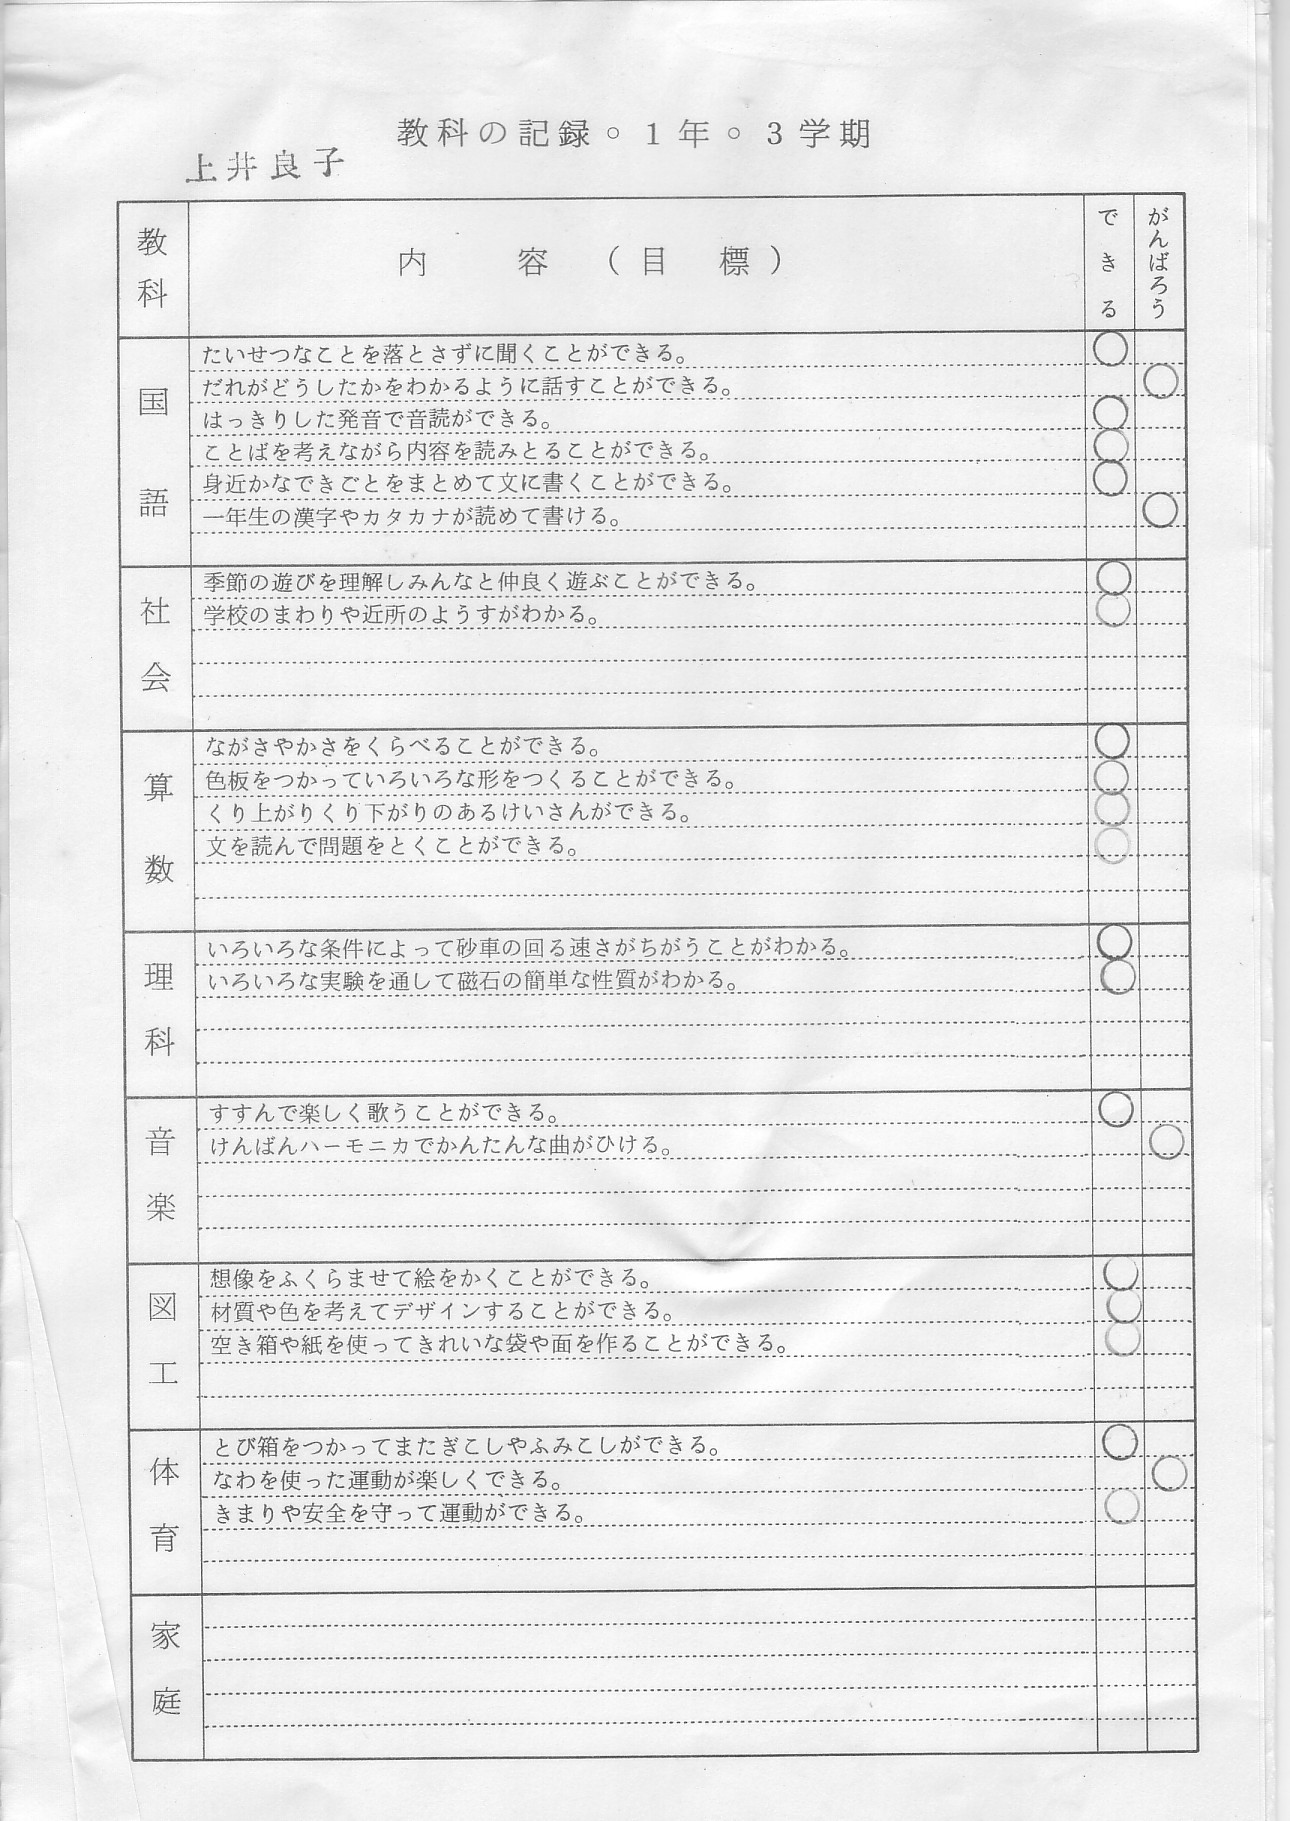 教科の記録。1年。3学期
上井良子
教科 内容(目標) できる がんばろう
国語
たいせつなことを落とさずに聞くことができる。 ○
だれがどうしたかをわかるように話すことができる。 ○
はっきりした発音で音読ができる。 ○
ことばを考えながら内容を読みとることができる。 ○
身近かなできごとをまとめて文に書くことができる。 ○
一年生の漢字やカタカナが読めて書ける。 ○
社会
季節の遊びを理解しみんなと仲良く遊ぶことができる。 ○
学校のまわりや近所のようすがわかる。 ○
算数
ながさやかさをくらべることができる。 ○
色板をつかっていろいろな形をつくることができる。 ○
くり上がりくり下がりのあるけいさんができる。 ○
文を読んで問題をとくことができる。 ○
理科
いろいろな条件によって砂車の回る速さがちがうことがわかる。 ○
いろいろな実験を通して磁石の簡単な性質がわかる。 ○
音楽
すすんで楽しく歌うことができる。 ○
けんばんハーモニカでかんたんな曲がひける。 ○
図工
想像をふくらませて絵をかくことができる。 ○
材質や色を考えてデザインすることができる。 ○
空き箱や紙を使ってきれいな袋や面を作ることができる。 ○
体育
とび箱をつかってまたぎこしやふみこしができる。 ○
なわを使った運動が楽しくできる。 ○
きまりや安全を守って運動ができる。 ○
家庭